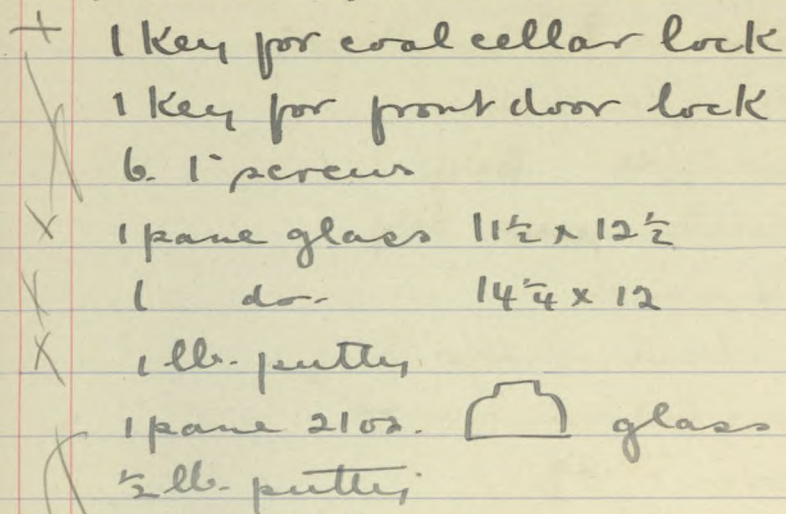 + 1 Key for coal cellar lock
1 Key for front door lock
6. 1" screws
x 1 pane glass 11½ x 12½
x 1 do. 14¼ x 12
x 1 lb. putty
1 pane 21 oz. glass
½ lb. putty